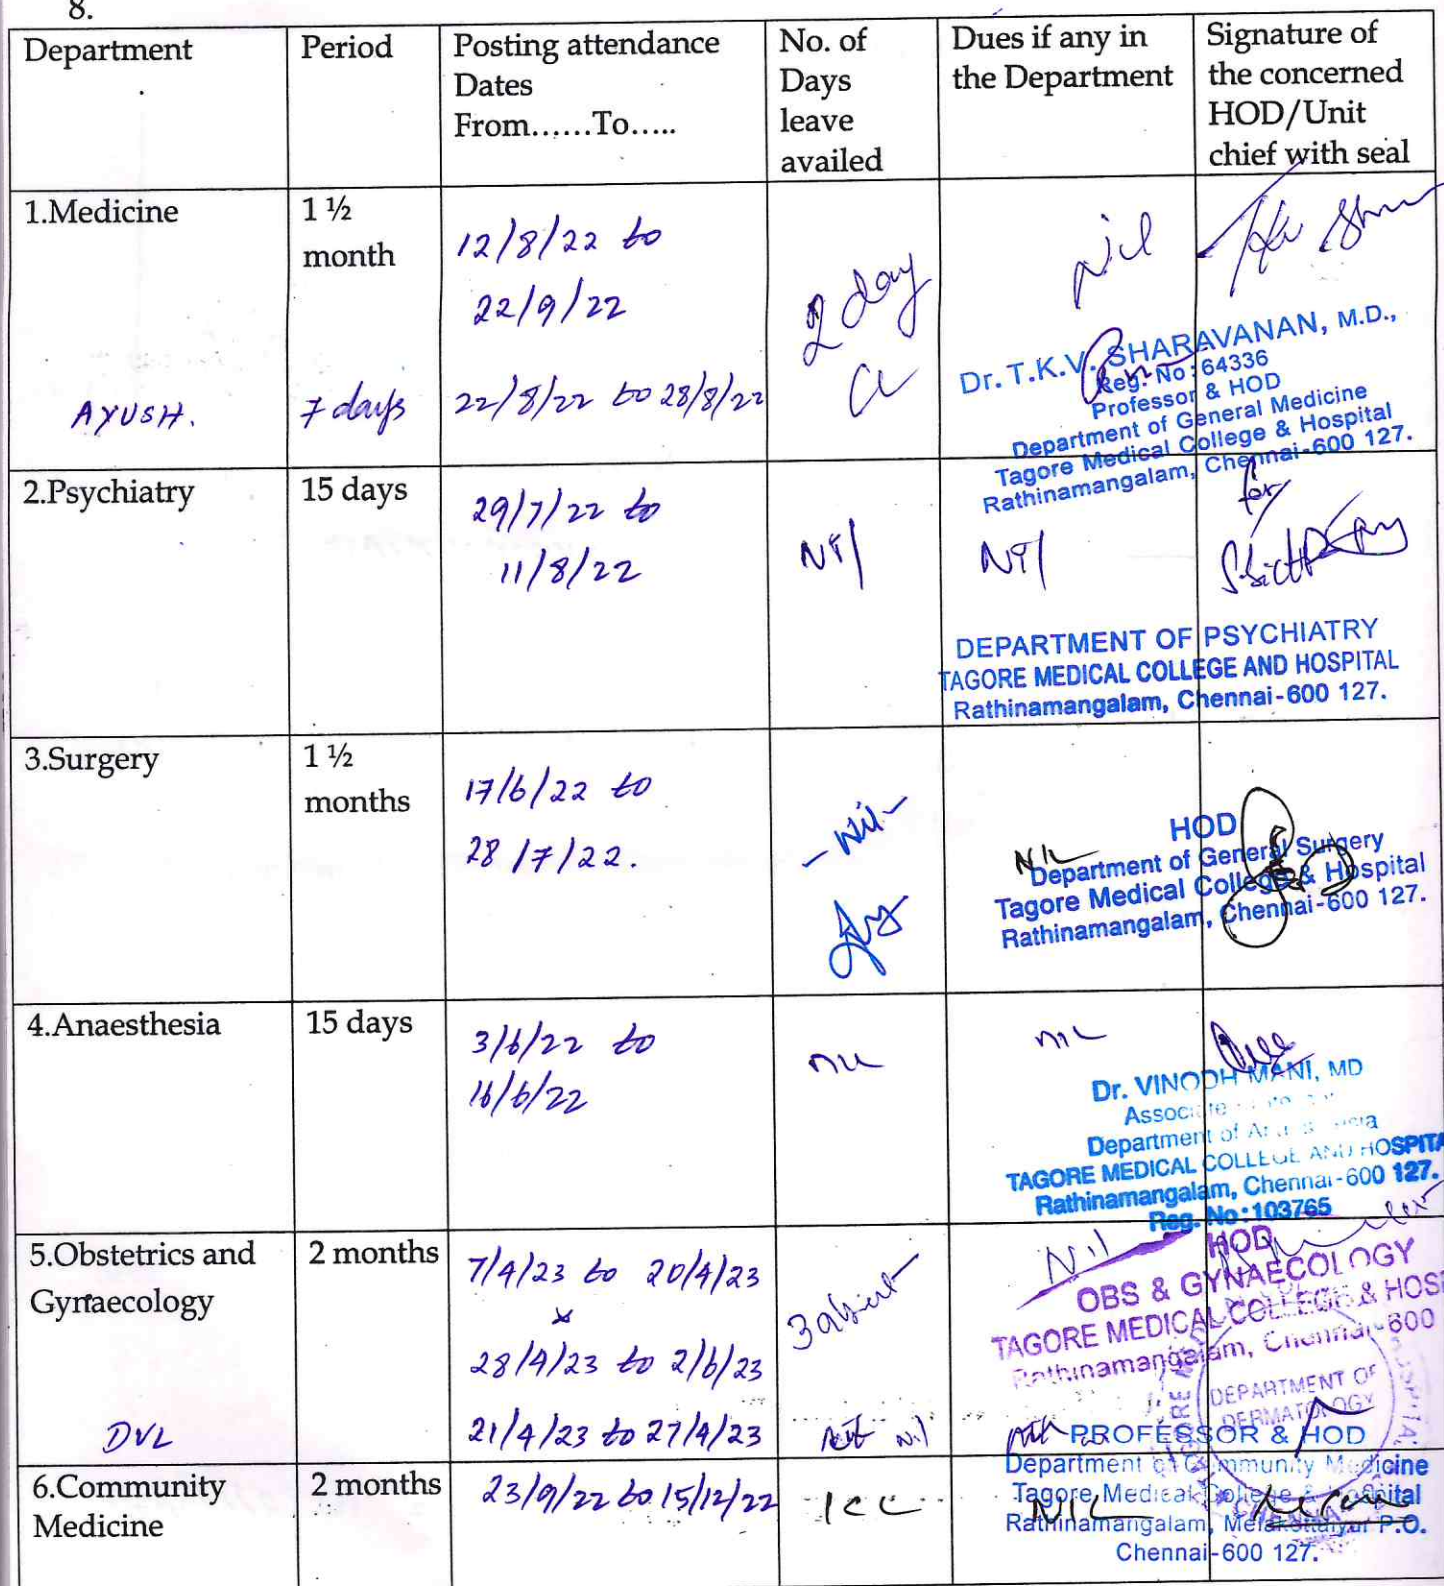 8.
Department
Period
Posting attendance
Dates
From......To.....
No. of
Days
leave
availed
Dues if any in
the Department
Signature of
the concerned
HOD/Unit
chief with seal
1.Medicine
1 ½
month
12/8/22 to
22/9/22
2 day
CL
Nil
Dr. T.K.V. SHARAVANAN, M.D.,
Reg. No: 64336
Professor & HOD
Department of General Medicine
Tagore Medical College & Hospital
Rathinamangalam, Chennai-600 127.
AYUSH.
7 days
22/8/22 to 28/8/22
2.Psychiatry
15 days
29/7/22 to
11/8/22
Nil
Nil
for
DEPARTMENT OF PSYCHIATRY
TAGORE MEDICAL COLLEGE AND HOSPITAL
Rathinamangalam, Chennai-600 127.
3.Surgery
1 ½
months
17/6/22 to
28/7/22.
-Nil-
NIL
HOD
Department of General Surgery
Tagore Medical College & Hospital
Rathinamangalam, Chennai-600 127.
4.Anaesthesia
15 days
3/6/22 to
16/6/22
NIL
NIL
Dr. VINODH MANI, MD
Department of
TAGORE MEDICAL COLLEGE AND HOSPITA
Rathinamangalam, Chennai-600 127.
Reg. No:103765
5.Obstetrics and
Gynaecology
2 months
7/4/23 to 20/4/23
x
28/4/23 to 2/6/23
3
Nil
HOD
OBS & GYNAECOLOGY
TAGORE MEDICAL COLLEGE & HOSP
Rathinamangalam, Chennai-600
DVL
21/4/23 to 27/4/23
Nil
DEPARTMENT OF
DERMATOLOGY
6.Community
Medicine
2 months
23/9/22 to 15/12/22
1 CL
NIL
PROFESSOR & HOD
Department of Community Medicine
Tagore Medical College & Hospital
Rathinamangalam, Melakottaiyur P.O.
Chennai-600 127.